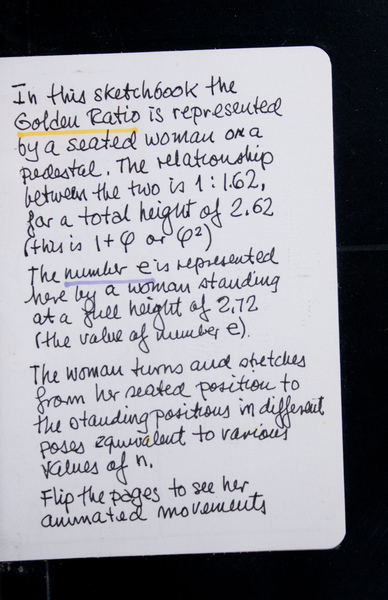 In this sketchbook the
Golden Ratio is represented
by a seated woman on a
pedestal. The relationship
between the two is 1:1.62,
for a total height of 2.62
(this is 1+φ or φ²)
The number e is represented
here by a woman standing
at a full height of 2,72
(the value of number e).
The woman turns and stretches
from her seated position to
the standing positions in different
poses equivalent to various
values of n.
Flip the pages to see her
animated movements